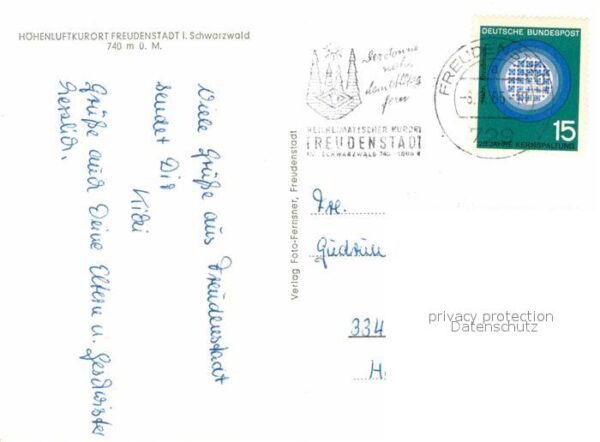 HÖHENLUFTKURORT FREUDENSTADT i. Schwarzwald
740 m ü. M.
Viele Grüße aus Freudenstadt
sendet Dir
Kidi
Grüße auch Deine Eltern u. Geschwister
herzlich.
Verlag Foto-Fernsner, Freudenstadt
Der Sonne
nahe
dem Alltag
fern
HEILKLIMATISCHER KURORT
FREUDENSTADT
SCHWARZWALD 740
FREUDENST
729
DEUTSCHE BUNDESPOST
15
JAHRE KERNSPALTUNG
Frl.
Gudrun
334
H
privacy protection
Datenschutz